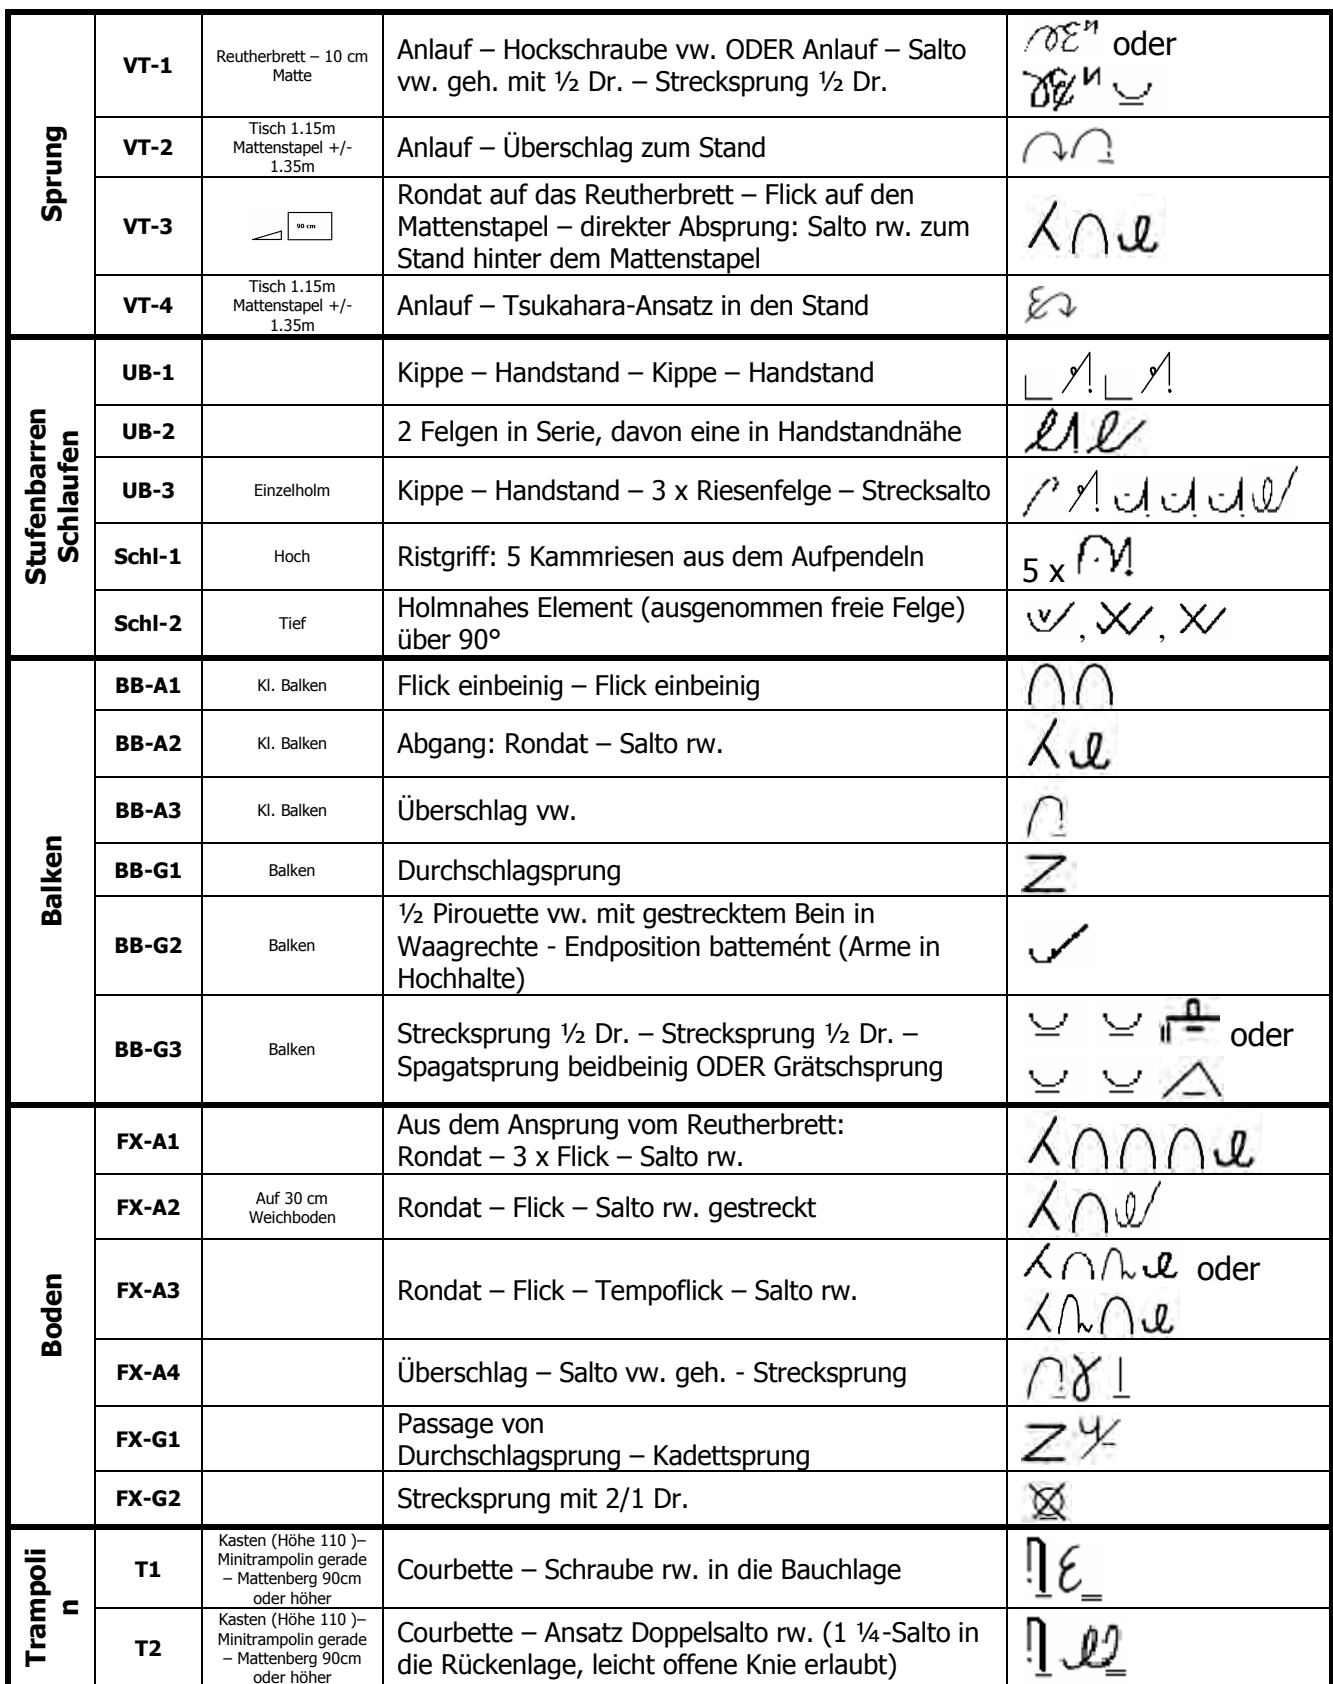 Sprung
VT-1
Reutherbrett – 10 cm
Matte
Anlauf – Hockschraube vw. ODER Anlauf – Salto
vw. geh. mit ½ Dr. – Strecksprung ½ Dr.
oder
VT-2
Tisch 1.15m
Mattenstapel +/-
1.35m
Anlauf – Überschlag zum Stand
VT-3
90 cm
Rondat auf das Reutherbrett – Flick auf den
Mattenstapel – direkter Absprung: Salto rw. zum
Stand hinter dem Mattenstapel
VT-4
Tisch 1.15m
Mattenstapel +/-
1.35m
Anlauf – Tsukahara-Ansatz in den Stand
Stufenbarren
Schlaufen
UB-1
Kippe – Handstand – Kippe – Handstand
UB-2
2 Felgen in Serie, davon eine in Handstandnähe
UB-3
Einzelholm
Kippe – Handstand – 3 x Riesenfelge – Strecksalto
Schl-1
Hoch
Ristgriff: 5 Kammriesen aus dem Aufpendeln
5 x
Schl-2
Tief
Holmnahes Element (ausgenommen freie Felge)
über 90°
, ,
Balken
BB-A1
Kl. Balken
Flick einbeinig – Flick einbeinig
BB-A2
Kl. Balken
Abgang: Rondat – Salto rw.
BB-A3
Kl. Balken
Überschlag vw.
BB-G1
Balken
Durchschlagsprung
BB-G2
Balken
½ Pirouette vw. mit gestrecktem Bein in
Waagrechte - Endposition battemént (Arme in
Hochhalte)
BB-G3
Balken
Strecksprung ½ Dr. – Strecksprung ½ Dr. –
Spagatsprung beidbeinig ODER Grätschsprung
oder
Boden
FX-A1
Aus dem Ansprung vom Reutherbrett:
Rondat – 3 x Flick – Salto rw.
FX-A2
Auf 30 cm
Weichboden
Rondat – Flick – Salto rw. gestreckt
FX-A3
Rondat – Flick – Tempoflick – Salto rw.
oder
FX-A4
Überschlag – Salto vw. geh. - Strecksprung
FX-G1
Passage von
Durchschlagsprung – Kadettsprung
FX-G2
Strecksprung mit 2/1 Dr.
Trampoli
n
T1
Kasten (Höhe 110 )–
Minitrampolin gerade
– Mattenberg 90cm
oder höher
Courbette – Schraube rw. in die Bauchlage
T2
Kasten (Höhe 110 )–
Minitrampolin gerade
– Mattenberg 90cm
oder höher
Courbette – Ansatz Doppelsalto rw. (1 ¼-Salto in
die Rückenlage, leicht offene Knie erlaubt)